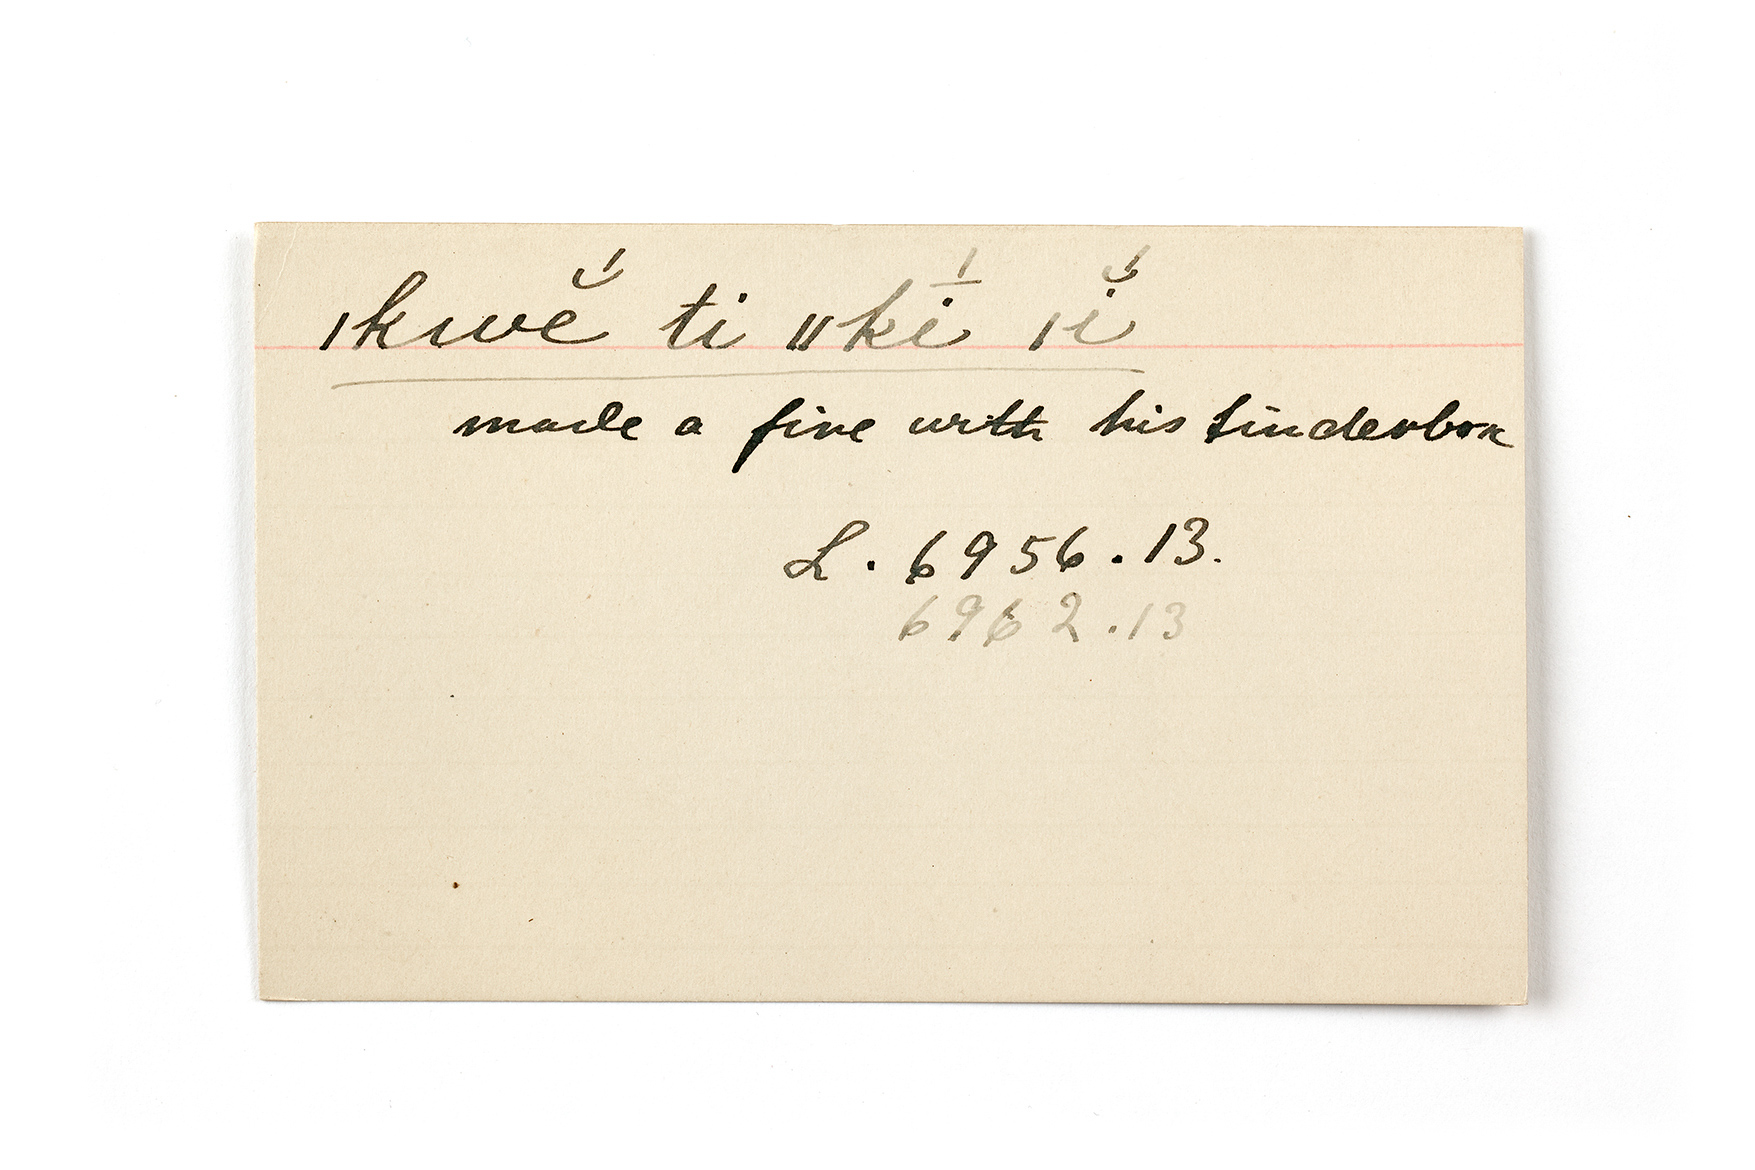 ǀkwẽ́ ti ǁkḯ ǀĭ́
made a fire with his tinderbox
L. 6956.13.
6962.13